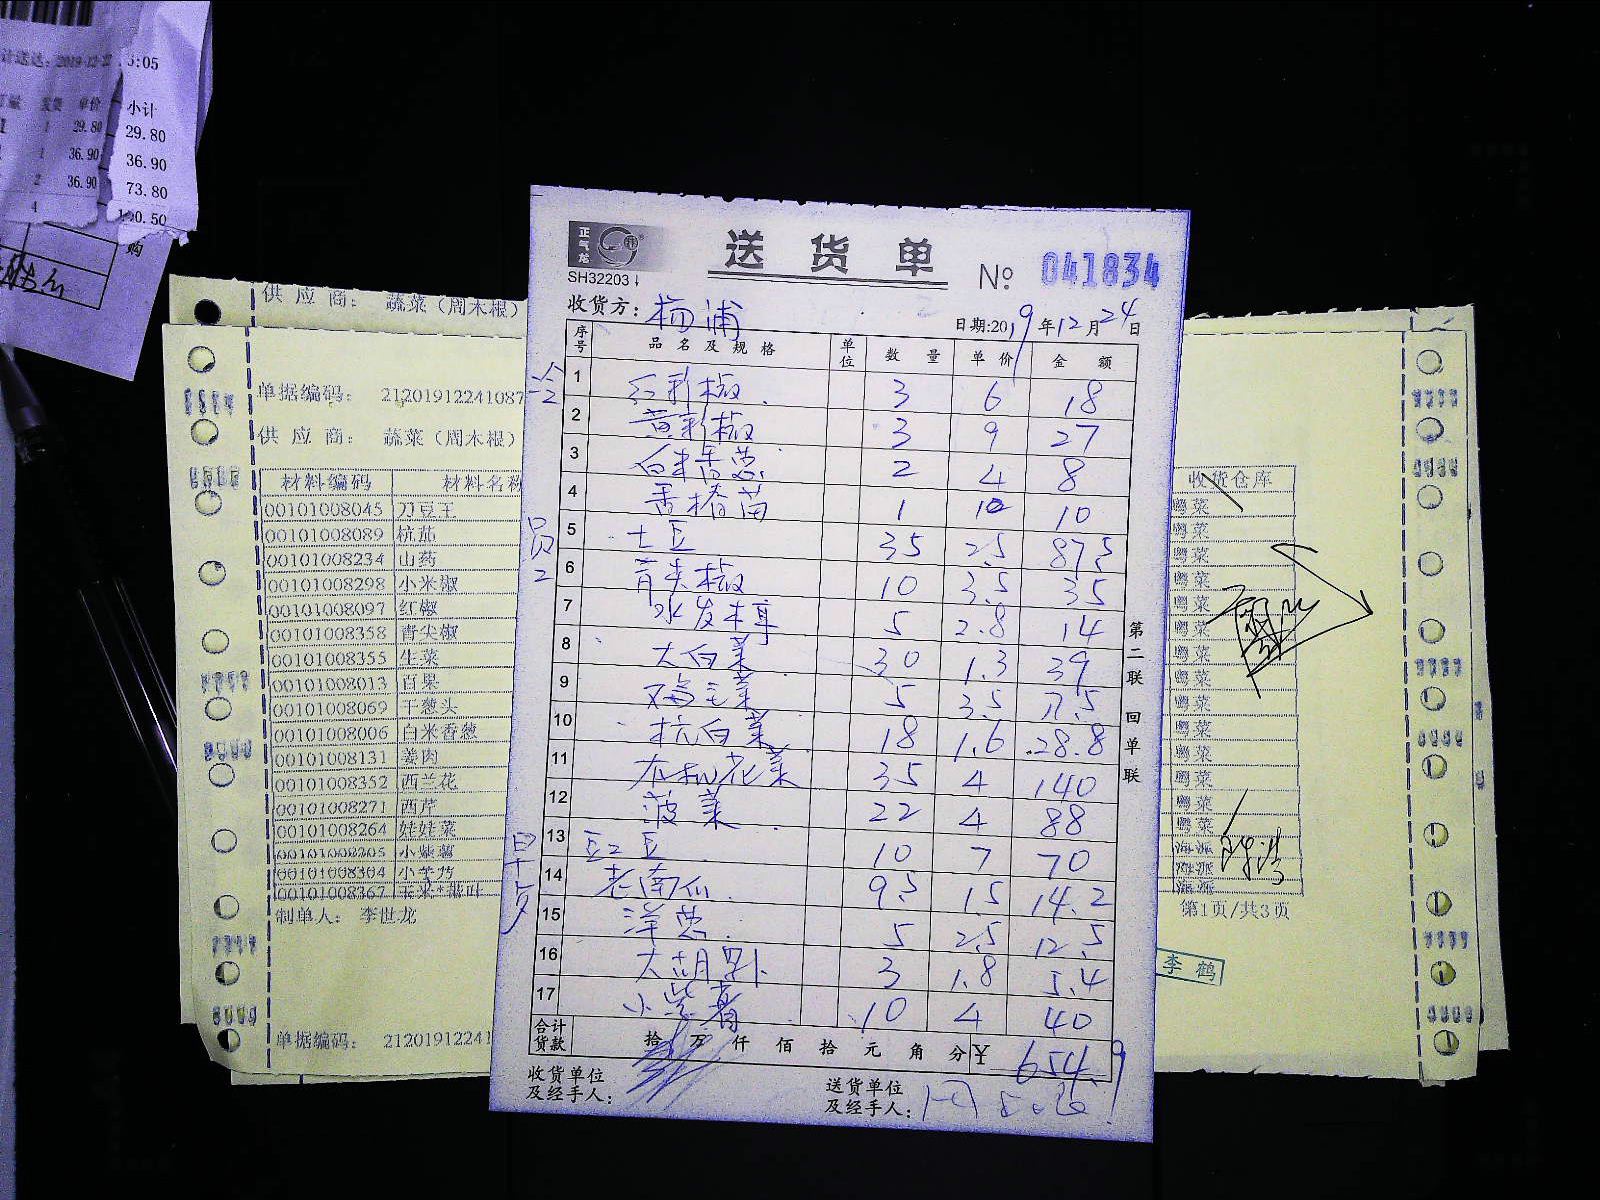 计送达：2019-12-22 15:05
单价 小计
1 29.80 29.80
1 36.90 36.90
2 36.90 73.80
4 190.50
购
供 应 商： 蔬菜（周木根）
单据编码： 21201912241087
供 应 商： 蔬菜（周木根）
材料编码 材料名称 收货仓库
00101008045 刀豆王 粤菜
00101008089 杭茄 粤菜
00101008234 山药 粤菜
00101008298 小米椒 粤菜
00101008097 红椒 粤菜
00101008358 青尖椒 粤菜
00101008355 生菜 粤菜
00101008013 百果 粤菜
00101008069 干葱头 粤菜
00101008006 白米香葱 粤菜
00101008131 姜肉 粤菜
00101008352 西兰花 粤菜
00101008271 西芹 粤菜
00101008264 娃娃菜 粤菜
00101008205 小紫薯 海派
00101008304 小芋艿 海派
00101008367 海派
制单人： 李世龙 第1页/共3页
李 鹤
单据编码： 21201912241
正气龙
SH32203
送 货 单
No 041834
收货方： 杨浦
日期:2019年12月24日
序号 品 名 及 规 格 单位 数 量 单 价 金 额
1 红彩椒 3 6 18
2 黄彩椒 3 9 27
3 白米香葱 2 4 8
4 香椿苗 1 10 10
5 土豆 35 2.5 87.5
6 青尖椒 10 3.5 35
7 水发木耳 5 2.8 14
8 大白菜 30 1.3 39
9 鸡毛菜 5 3.5 17.5
10 杭白菜 18 1.6 28.8
11 有机花菜 35 4 140
12 菠菜 22 4 88
13 豇豆 10 7 70
14 老南瓜 9.5 1.5 14.2
15 洋葱 5 2.5 12.5
16 大胡卜 3 1.8 5.4
17 小紫薯 10 4 40
合计货款 拾 万 仟 佰 拾 元 角 分 ¥ 654.9
收货单位及经手人：
送货单位及经手人：
第二联 回单联